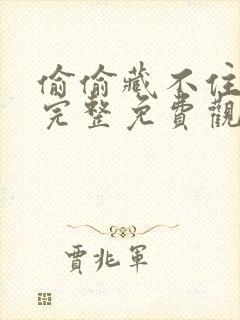 偷偷藏不住
完整免費觀
賈兆軍